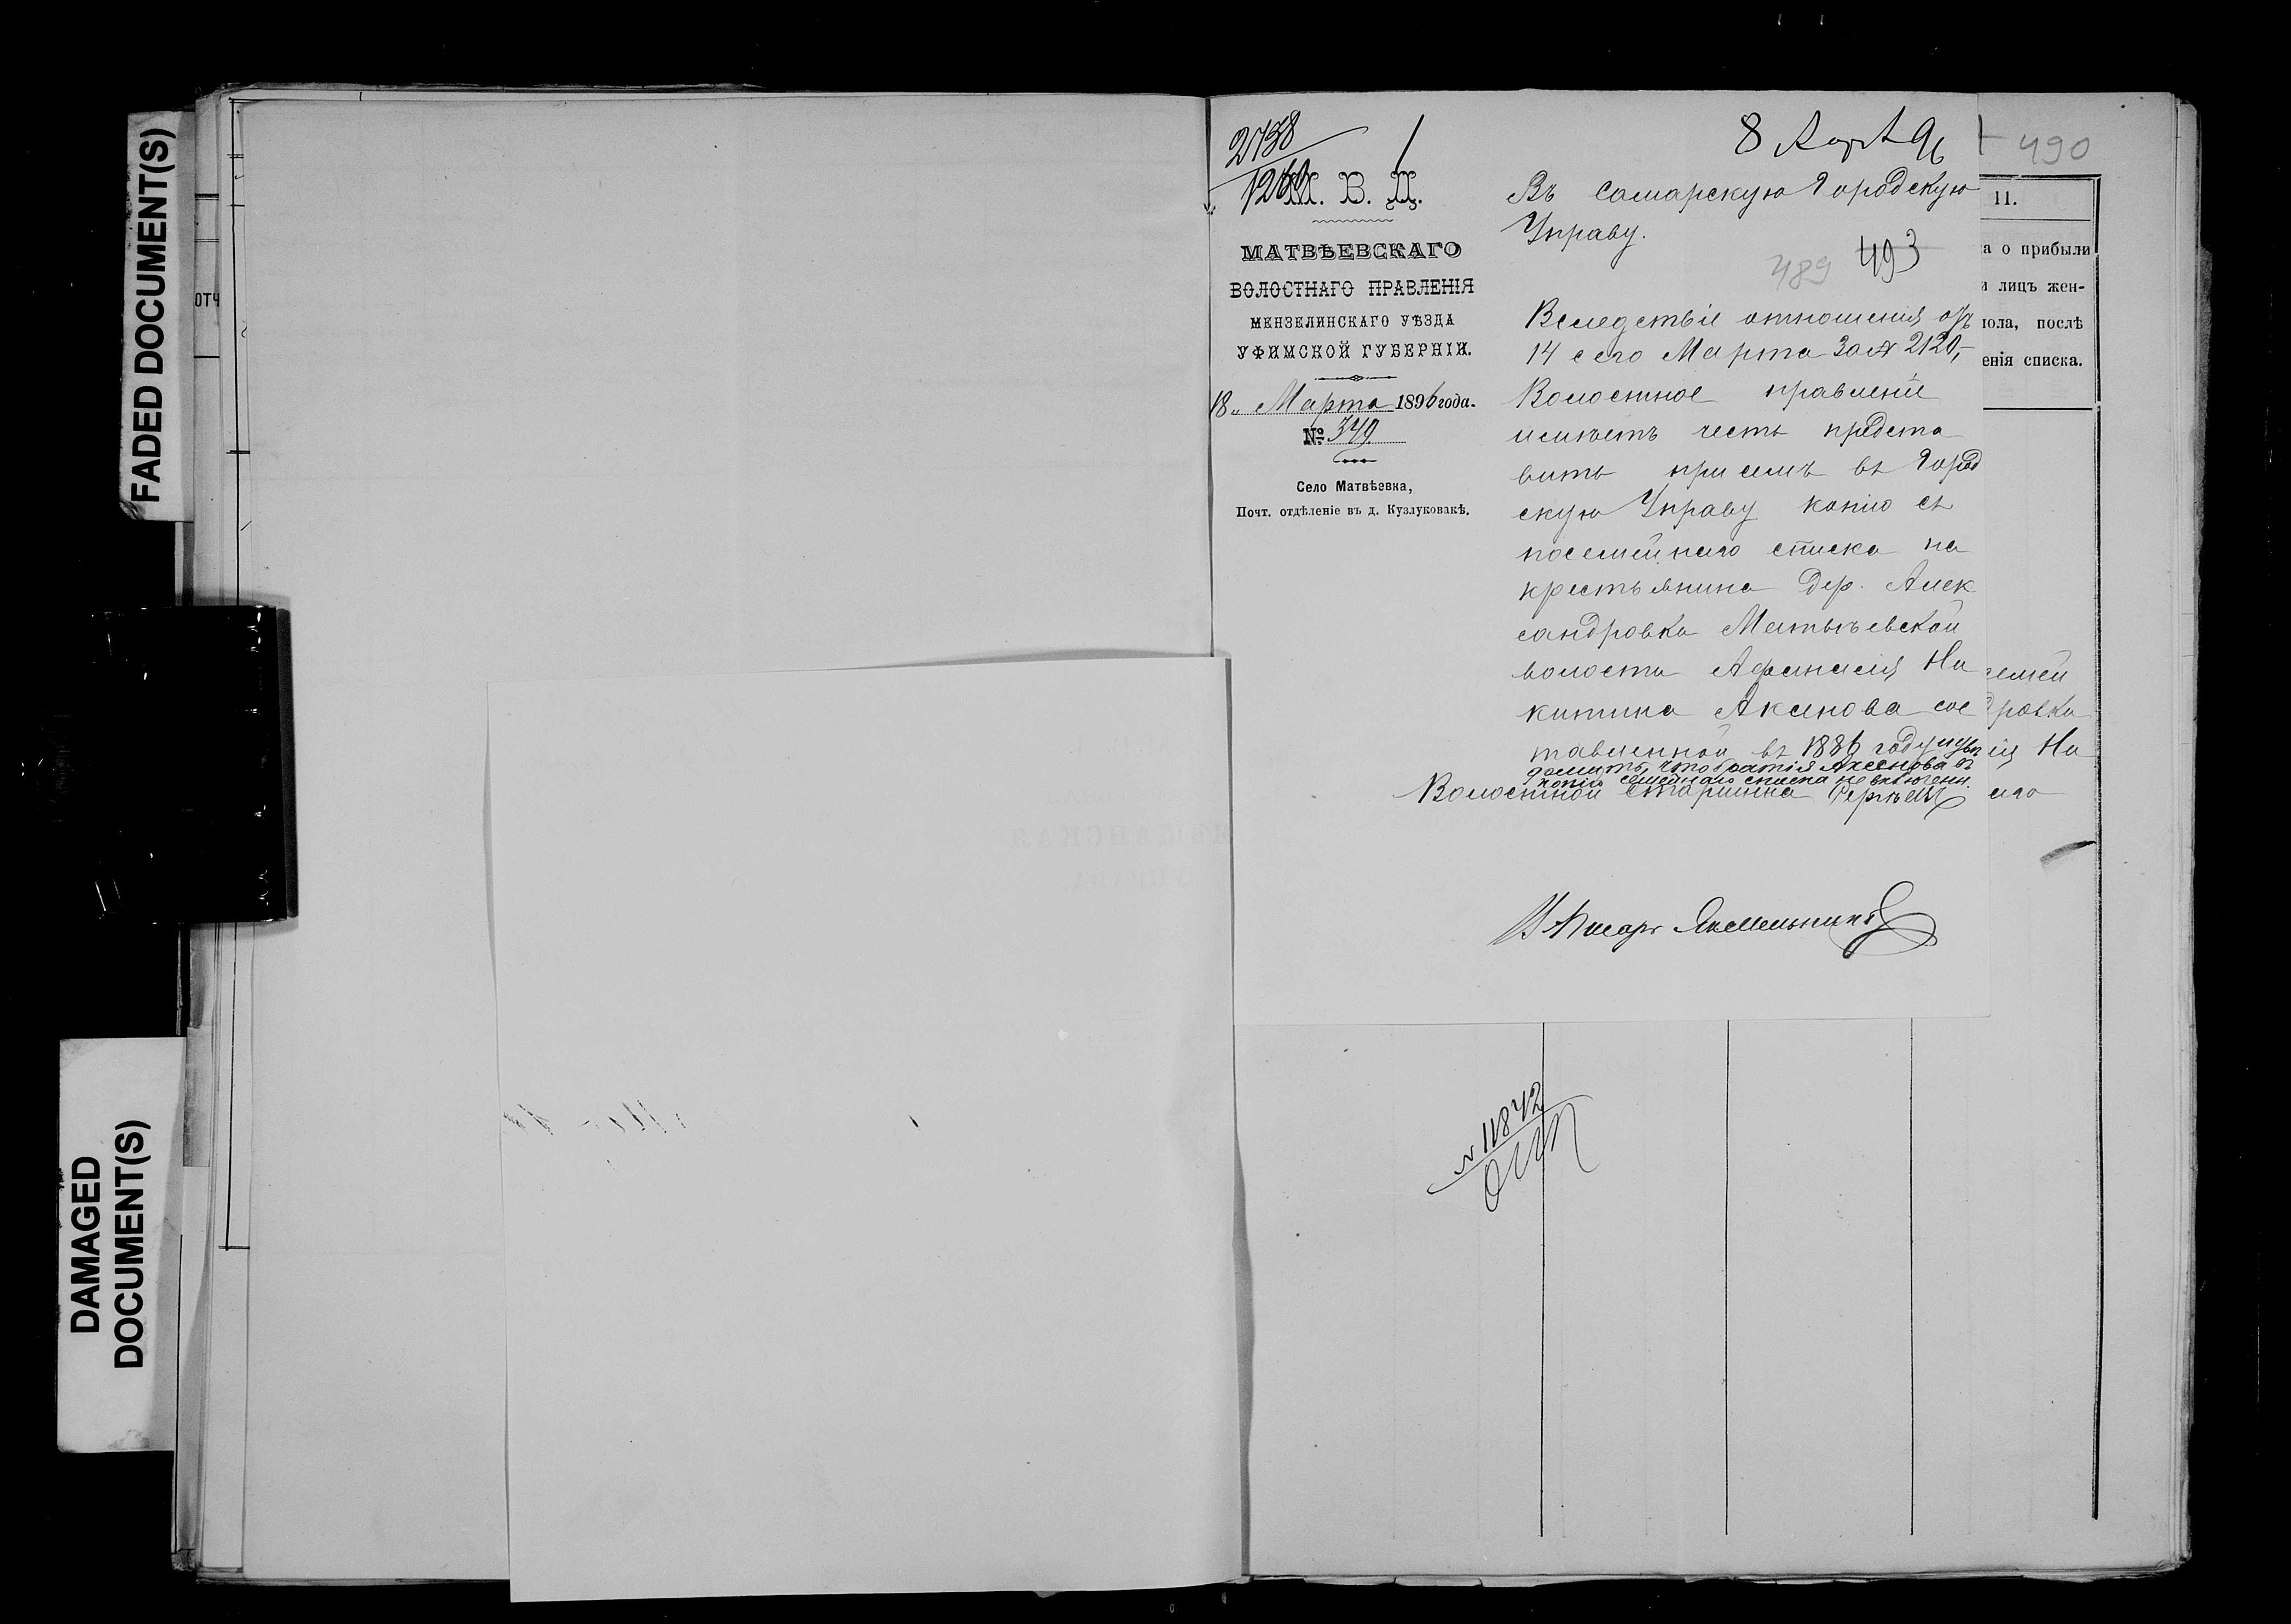 FADED DOCUMENT(S)
DAMAGED
DOCUMENT(S)
отч
2738
1260
М. В. Д.
МАТВѢЕВСКАГО
ВОЛОСТНАГО ПРАВЛЕНІЯ
МЕНЗЕЛИНСКАГО УѢЗДА
УФИМСКОЙ ГУБЕРНІИ.
18 „ Марта 1896 года.
№ 349
Село Матвѣевка,
Почт. отдѣленіе въ д. Кузлуковакѣ.
8 Апр 96
490
Въ Самарскую Городскую
Управу.
489 493
Вследствіе отношения отъ
14 сего Марта за № 2120,-
Волостное правленіе
имѣетъ честь предста
вить при семъ въ Город
скую Управу копію съ
посемейнаго списка на
крестьянина дер. Алек
сандровка Матвѣевской
волости Афанасія Ни
китина Аксенова сос
тавленной въ 1886 году
домить, что братія Аксенова въ
копію семейнаго списка не включены.
Волостной Старшина
Писарь
11.
а о прибыли
и лицъ жен-
пола, послѣ
енія списка.
семей
дровка
ія Ни
№ 11842